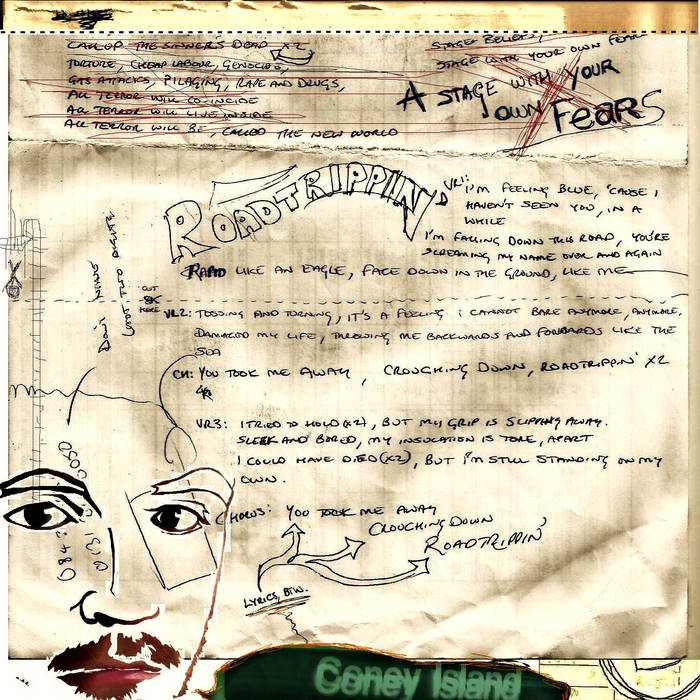 CALL UP THE SINNER'S DEAD X2
TORTURE, CHEAP LABOUR, GENOCIDE,
GAS ATTACKS, PILAGING, RAPE AND DRUGS,
ALL TERROR WILL CO-INCIDE
ALL TERROR WILL LIVE INSIDE
ALL TERROR WILL BE, CALLED THE NEW WORLD
STAGE
STAGE WITH YOUR OWN FEAR
A STAGE WITH YOUR
OWN FEARS
ROADTRIPPIN'
VR1: I'M FEELING BLUE, 'CAUSE I
HAVEN'T SEEN YOU, IN A
WHILE
I'M FALLING DOWN THIS ROAD, YOU'RE
SCREAMING MY NAME OVER AND AGAIN
RAPID LIKE AN EAGLE, FACE DOWN IN THE GROUND, LIKE ME
CUT
HERE
VR2: TOSSING AND TURNING, IT'S A FEELING I CANNOT BARE ANYMORE, ANYMORE.
DAMAGED MY LIFE, THROWING ME BACKWARDS AND FORWARDS LIKE THE
SEA
CH: YOU TOOK ME AWAY, CROUCHING DOWN, ROADTRIPPIN' X2
VR3: I TRIED TO HOLD (X2), BUT MY GRIP IS SLIPPING AWAY.
SLEEK AND BORED, MY INSULATION IS TORE, APART
I COULD HAVE DIED (X2), BUT I'M STILL STANDING ON MY
OWN.
CHORUS: YOU TOOK ME AWAY
CROUCHING DOWN
ROADTRIPPIN'
LYRICS, BTW.
Coney Island